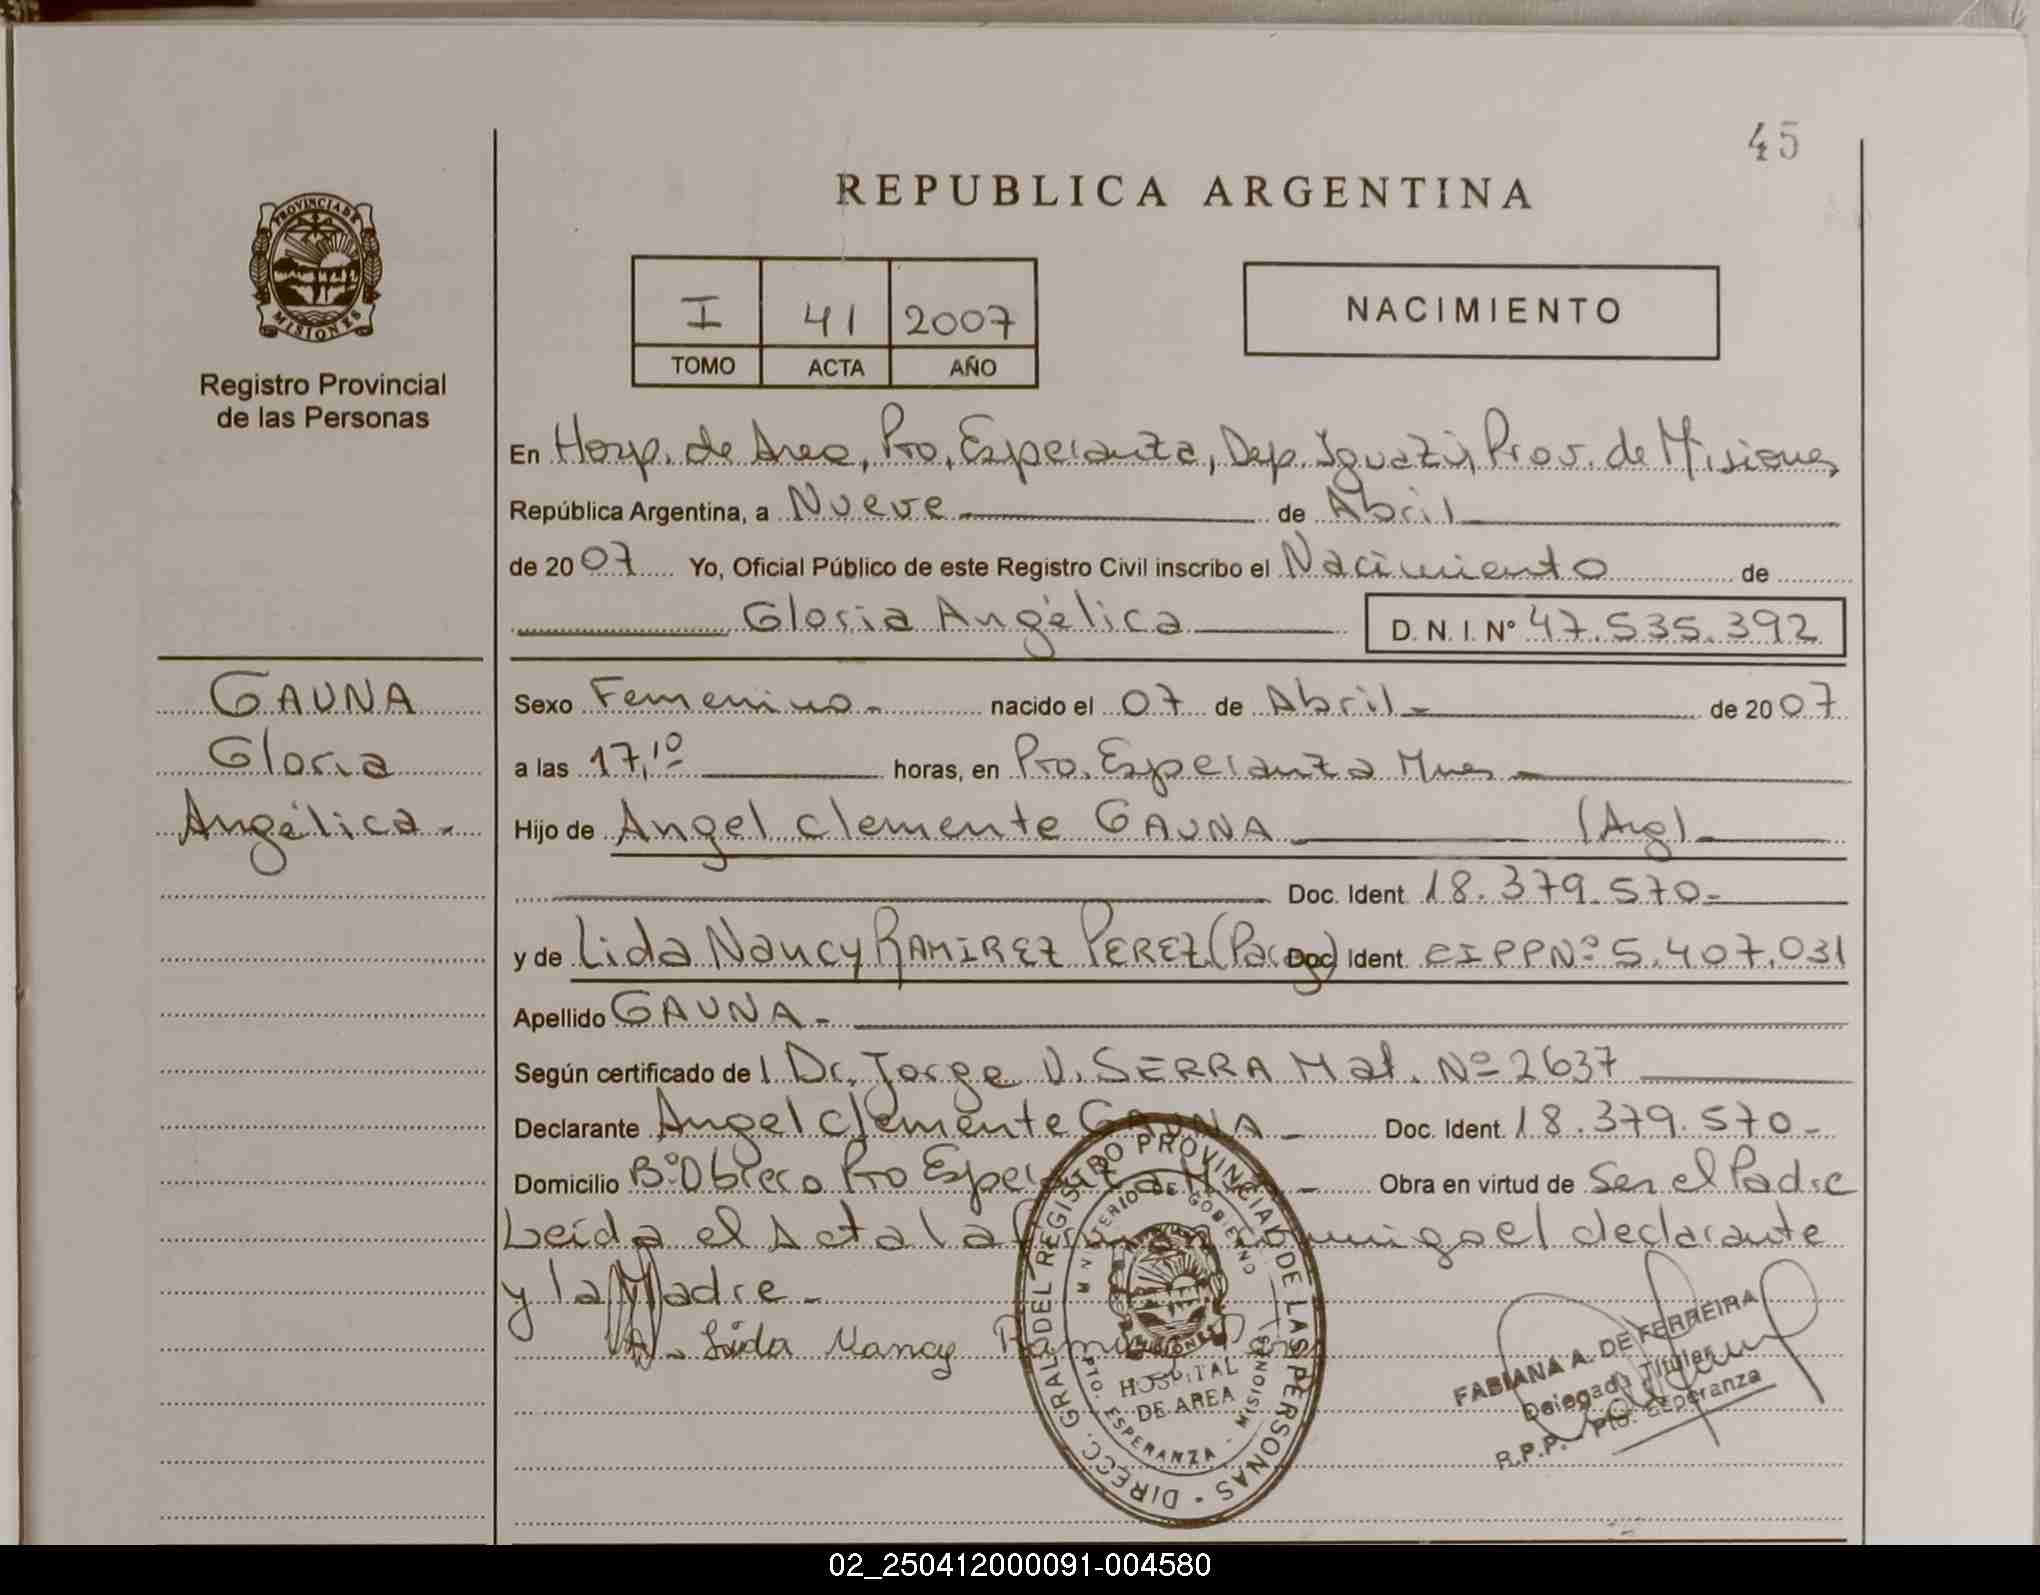 45
REPUBLICA ARGENTINA
PROVINCIA DE
MISIONES
Registro Provincial
de las Personas
I 41 2007
TOMO ACTA AÑO
NACIMIENTO
En Hosp. de Area, Pto. Esperanza, Dep. Iguazú, Prov. de Misiones
República Argentina, a Nueve de Abril
de 2007 Yo, Oficial Público de este Registro Civil inscribo el Nacimiento de
Gloria Angélica D. N. I. N° 47.535.392
GAUNA
Gloria
Angélica.-
Sexo Femenino.- nacido el 07 de Abril.- de 2007
a las 17,10 horas, en Pto. Esperanza Mnes
Hijo de Angel Clemente GAUNA (Arg)
Doc. Ident. 18.379.570-
y de Lida Nancy RAMIREZ PEREZ (Parag) Doc. Ident. CIPPNº 5.407.031
Apellido GAUNA-
Según certificado de l Dr. Jorge V. SERRA Mat. Nº 2637
Declarante Angel Clemente GAUNA- Doc. Ident. 18.379.570-
Domicilio Bº Obrero Pto Esperanza Obra en virtud de Ser el Padre
Leida el Acta la firman conmigo el declarante
y la Madre.-
Lida Nancy
DIRECC. GRAL. DEL REGISTRO PROVINCIAL DE LAS PERSONAS
MINISTERIO DE GOBIERNO
MISIONES
HOSPITAL
DE AREA
PTO. ESPERANZA - MISIONES
FABIANA A. DE FERREIRA
Delegada Titular
R.P.P. - Pto. Esperanza
02_250412000091-004580